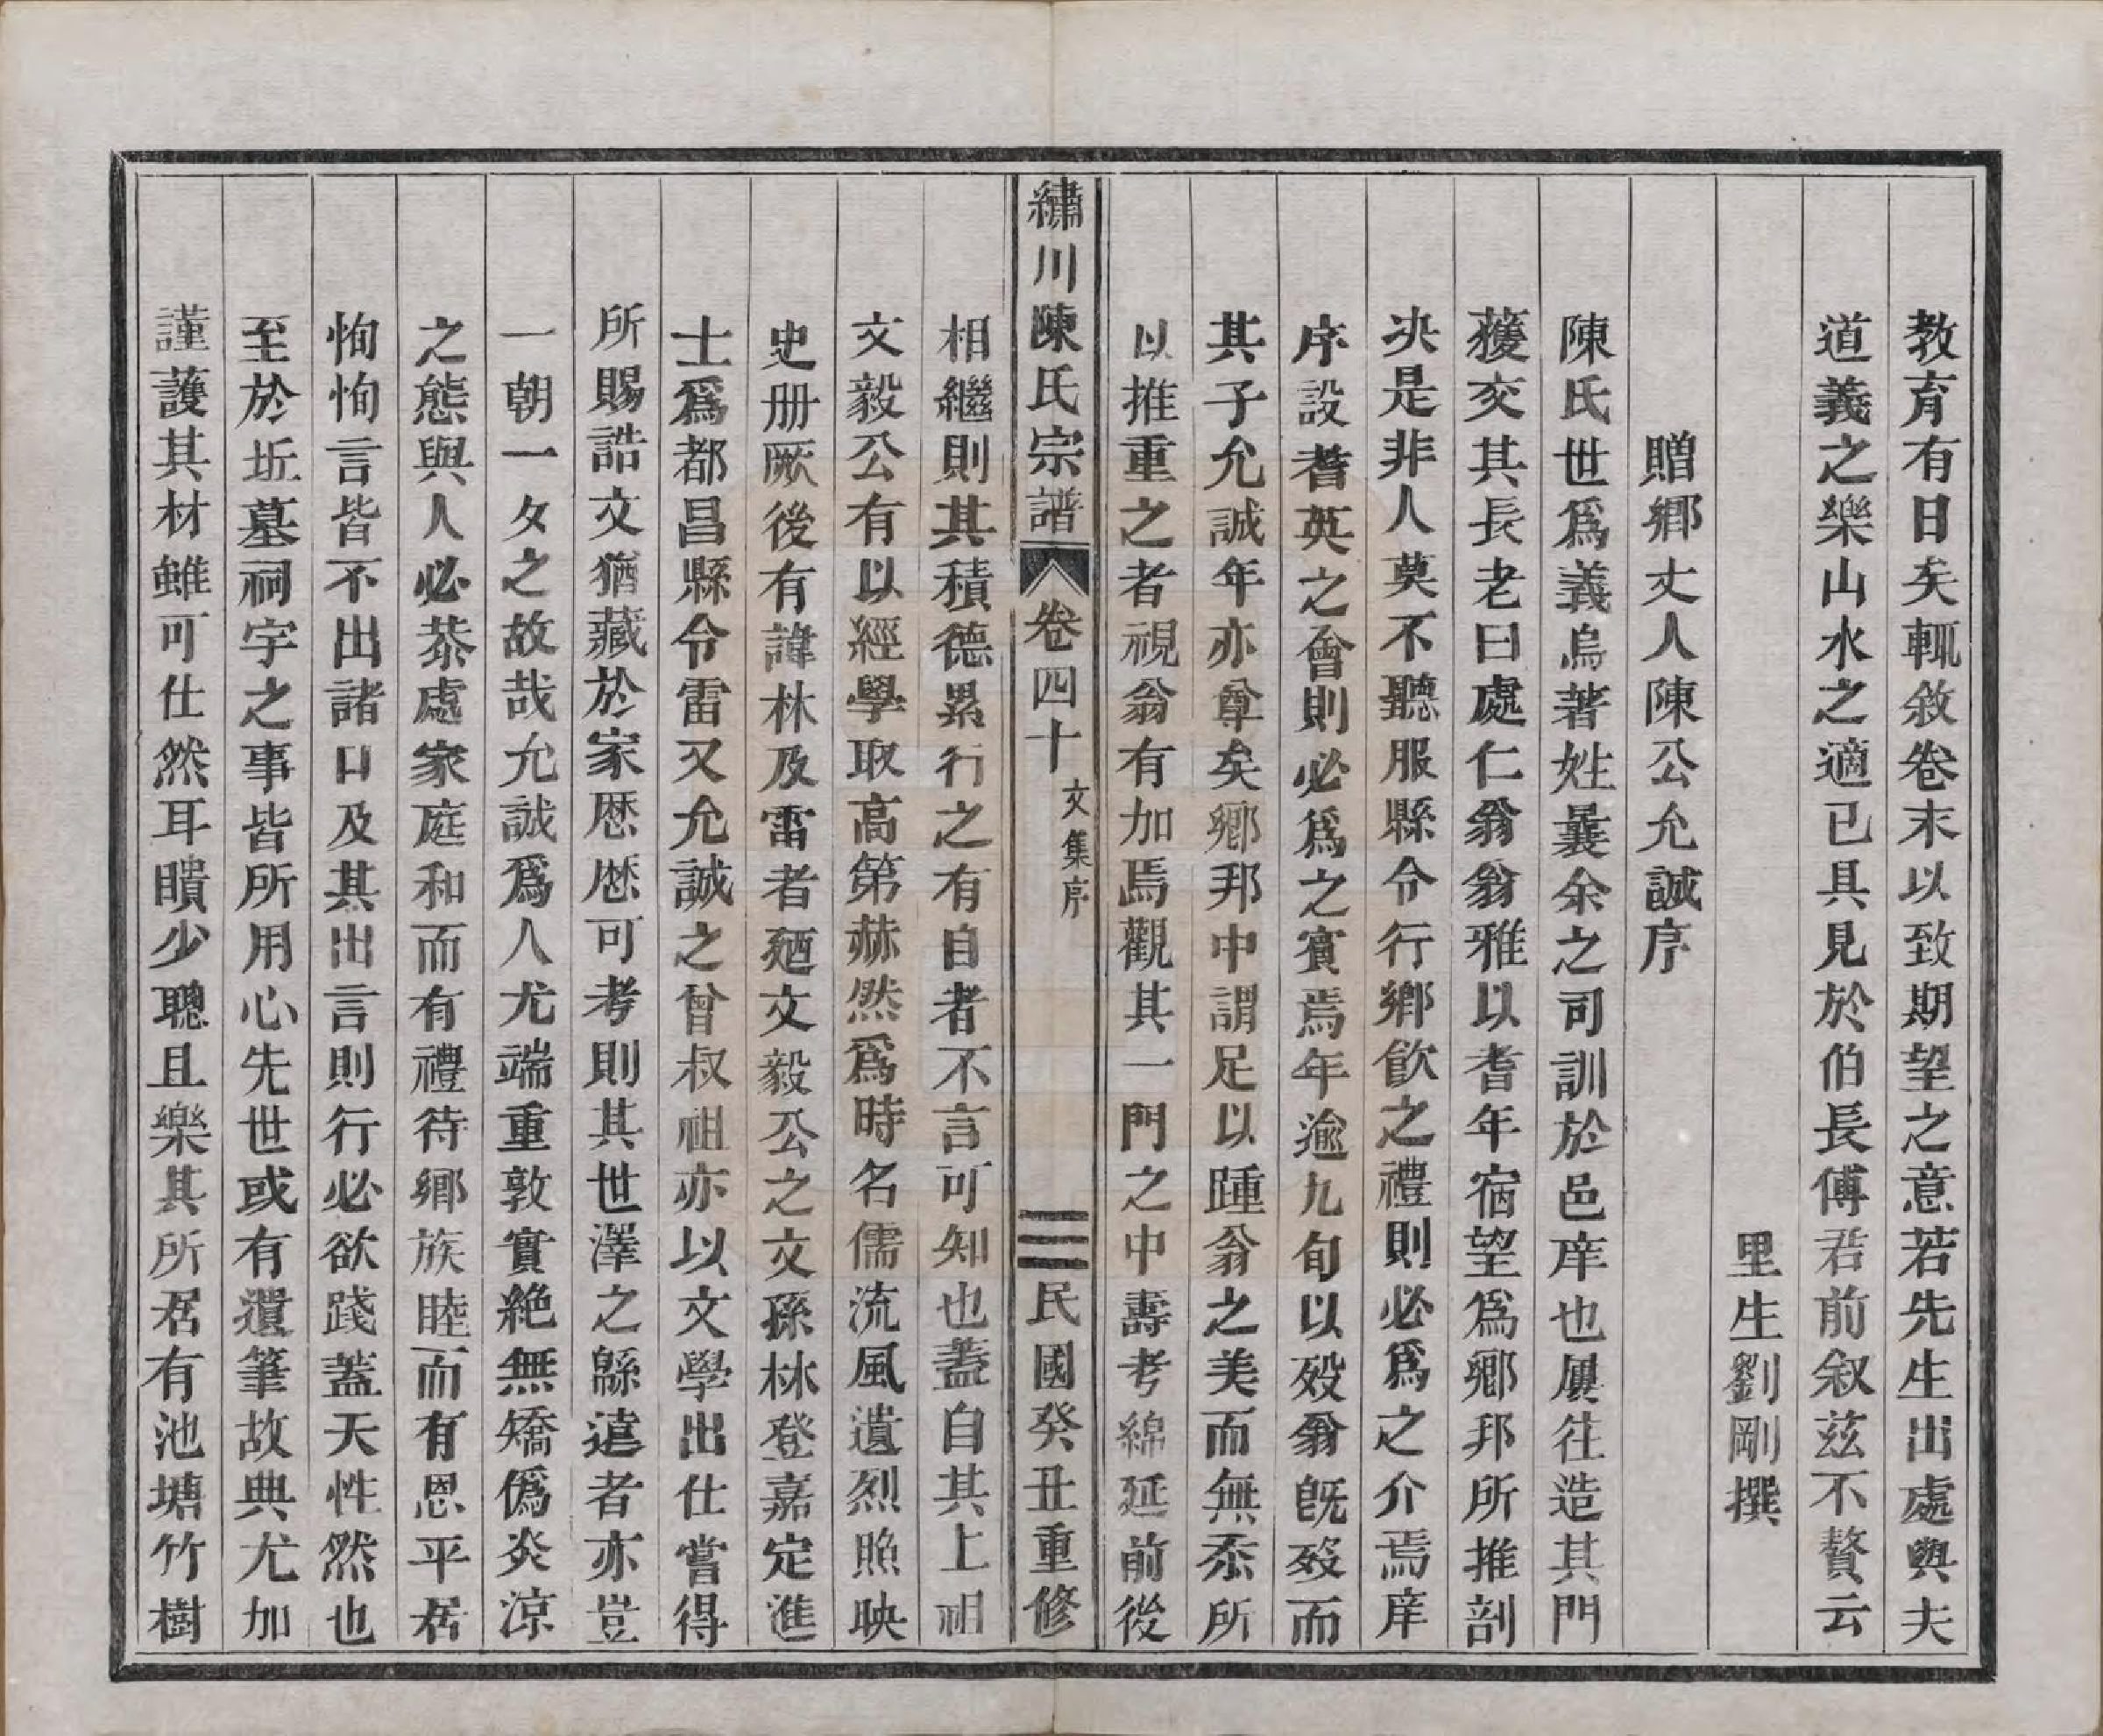 教育有日矣輒敘卷末以致期望之意若先生出處與夫
道義之樂山水之適已具見於伯長傅君前叙茲不贅云
里生劉剛撰
贈鄉丈人陳公允誠序
陳氏世爲義烏著姓曩余之司訓於邑庠也屢往造其門
獲交其長老曰處仁翁翁雅以耆年宿望爲鄉邦所推剖
决是非人莫不聽服縣令行鄉飲之禮則必爲之介焉庠
序設耆英之會則必爲之賓焉年逾九旬以歿翁旣歿而
其子允誠年亦尊矣鄉邦中謂足以踵翁之美而無忝所
以推重之者視翁有加焉觀其一門之中壽考綿延前後
繡川陳氏宗譜 卷四十 文集序 三 民國癸丑重修
相繼則其積德累行之有自者不言可知也蓋自其上祖
文毅公有以經學取高第赫然爲時名儒流風遺烈照映
史册厥後有諱林及雷者廼文毅公之文孫林登嘉定進
士爲都昌縣令雷又允誠之曾叔祖亦以文學出仕嘗得
所賜誥文猶藏於家歷歷可考則其世澤之緜遠者亦豈
一朝一夕之故哉允誠爲人尤端重敦實絶無矯僞炎涼
之態與人必恭處家庭和而有禮待鄉族睦而有恩平居
恂恂言皆不出諸口及其出言則行必欲踐蓋天性然也
至於坵墓祠宇之事皆所用心先世或有遺筆故典尤加
謹護其材雖可仕然耳聵少聰且樂其所居有池塘竹樹